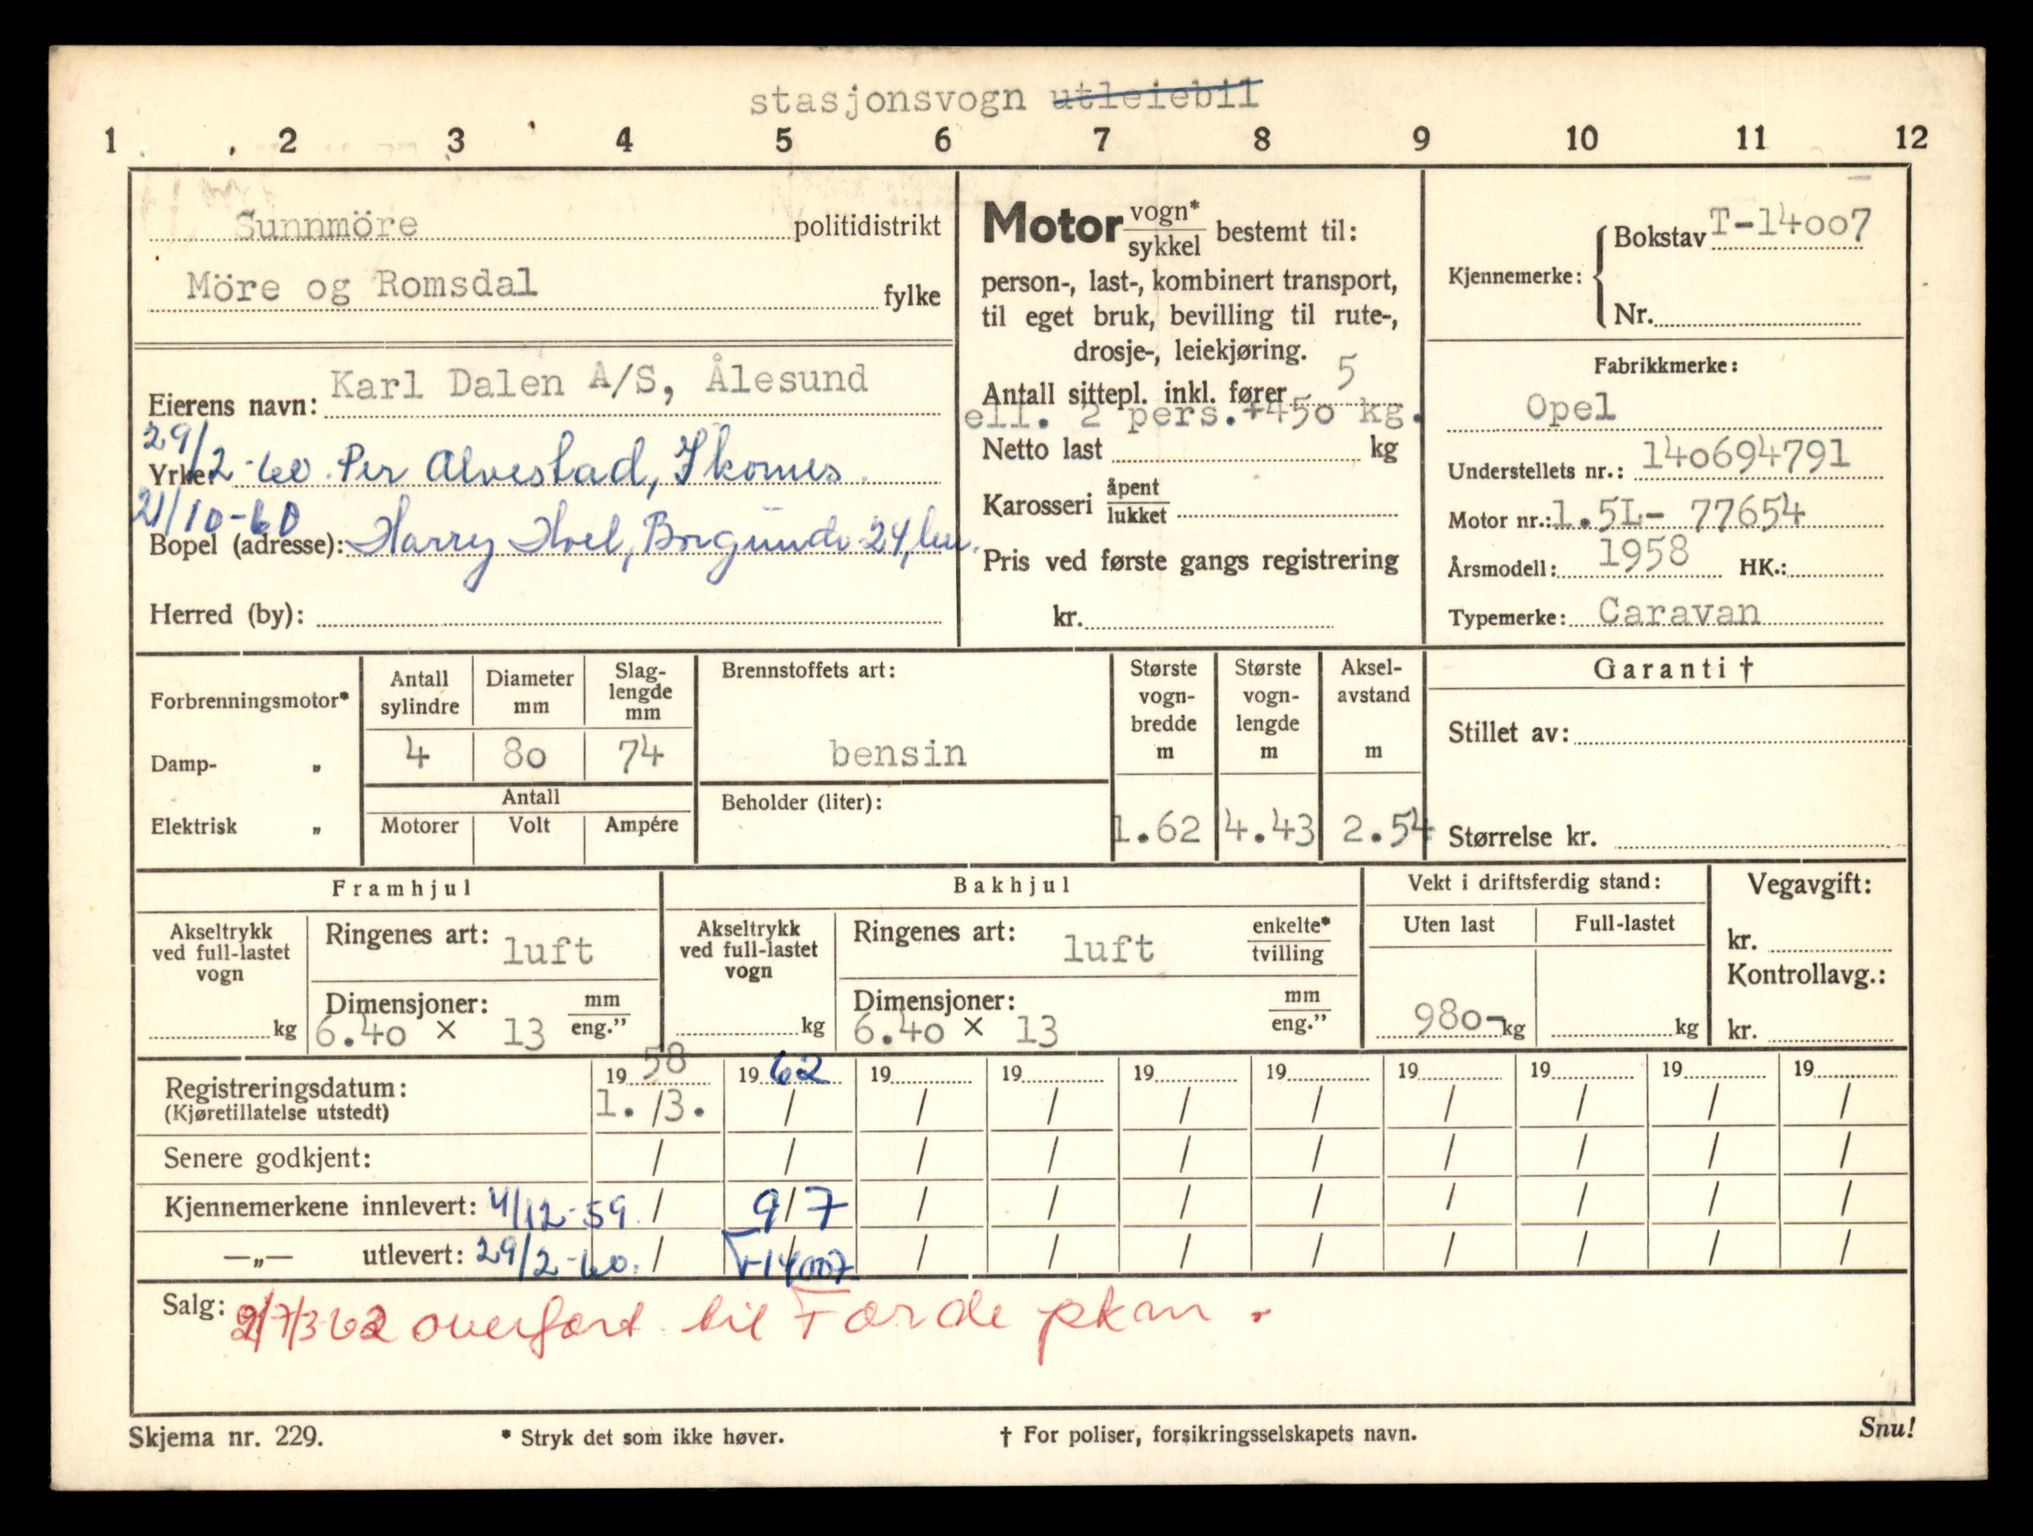 stasjonsvogn utleiebil
1 2 3 4 5 6 7 8 9 10 11 12
Sunnmöre politidistrikt
Möre og Romsdal fylke
Eierens navn: Karl Dalen A/S, Ålesund
29/2-60. Per Alvestad, Skomes.
Yrke:
21/10-60 Harry Hoel, Borgundv. 24, her.
Bopel (adresse):
Herred (by):
Motor vogn* / sykkel bestemt til:
person-, last-, kombinert transport,
til eget bruk, bevilling til rute-,
drosje-, leiekjøring.
Antall sittepl. inkl. fører 5
ell. 2 pers.+450 kg.
Netto last kg
Karosseri åpent / lukket
Pris ved første gangs registrering
kr.
Kjennemerke: Bokstav T-14007
Nr.
Fabrikkmerke:
Opel
Understellets nr.: 140694791
Motor nr.: 1.5L- 77654
Årsmodell: 1958 HK.:
Typemerke: Caravan
Forbrenningsmotor*
Damp- „
Elektrisk „
Antall sylindre
4
Diameter mm
80
Slag-
lengde
mm
74
Antall
Motorer Volt Ampére
Brennstoffets art:
bensin
Beholder (liter):
Største
vogn-
bredde
m
1.62
Største
vogn-
lengde
m
4.43
Aksel-
avstand
m
2.54
Garanti †
Stillet av:
Størrelse kr.
Framhjul
Akseltrykk
ved full-lastet
vogn
kg
Ringenes art: luft
Dimensjoner: mm / eng.”
6.40 x 13
Bakhjul
Akseltrykk
ved full-lastet
vogn
kg
Ringenes art: luft enkelte* / tvilling
Dimensjoner: mm / eng.”
6.40 x 13
Vekt i driftsferdig stand:
Uten last Full-lastet
980- kg kg
Vegavgift:
kr.
Kontrollavg.:
kr.
Registreringsdatum: 1958 1962 19 19 19 19 19 19 19 19
(Kjøretillatelse utstedt) 1. /3. / / / / / / / / /
Senere godkjent: / / / / / / / / / /
Kjennemerkene innlevert: 4/12-59. / 9/7 / / / / / / / /
—„— utlevert: 29/2-60. / T-14007 / / / / / / / /
Salg: overført til Førde pkm.
Skjema nr. 229. * Stryk det som ikke høver. † For poliser, forsikringsselskapets navn. Snu!